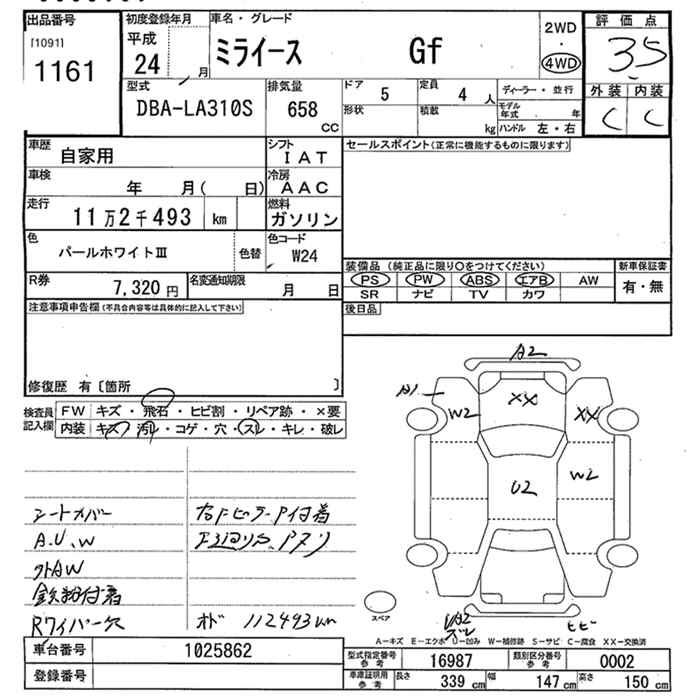 出品番号
[1091]
1161
初度登録年月
平成
24 月
車名・グレード
ミライース Gf
2WD
・
4WD
評価点
3.5
外装 内装
C C
型式
DBA-LA310S
排気量
658
CC
ドア
5
定員
4 人
ディーラー・並行
形状
積載
kg
モデル年式 年
ハンドル 左・右
車歴
自家用
シフト
IAT
車検
年 月( 日)
冷房
AAC
走行
11万2千493 km
燃料
ガソリン
色
パールホワイトⅢ
色替
色コード
W24
R券
7,320 円
名変通知期限
月 日
セールスポイント(正常に機能するものに限ります)
装備品 (純正品に限り○をつけてください)
新車保証書
PS PW ABS エアB AW
有・無
SR ナビ TV カワ
後日品
注意事項申告欄(不具合内容等は具体的に記入して下さい)
修復歴 有〔箇所 〕
検査員
記入欄
FW キズ・飛石・ヒビ割・リペア跡・×要
内装 キズ・汚レ・コゲ・穴・スレ・キレ・破レ
シートカバー
A.U.W
外AW
鉄粉付着
Rワイパー欠
オド 112493km
A2
A1
W2
XX
XX
U2
W2
UA2
スレ
ヒビ
スペア
A―キズ E―エクボ U―凹み W―補修跡 S―サビ C―腐食 XX―交換済
車台番号
1025862
登録番号
型式指定番号
参考
16987
類別区分番号
参考
0002
車庫証明用
参考
長さ 339 cm
幅 147 cm
高さ 150 cm